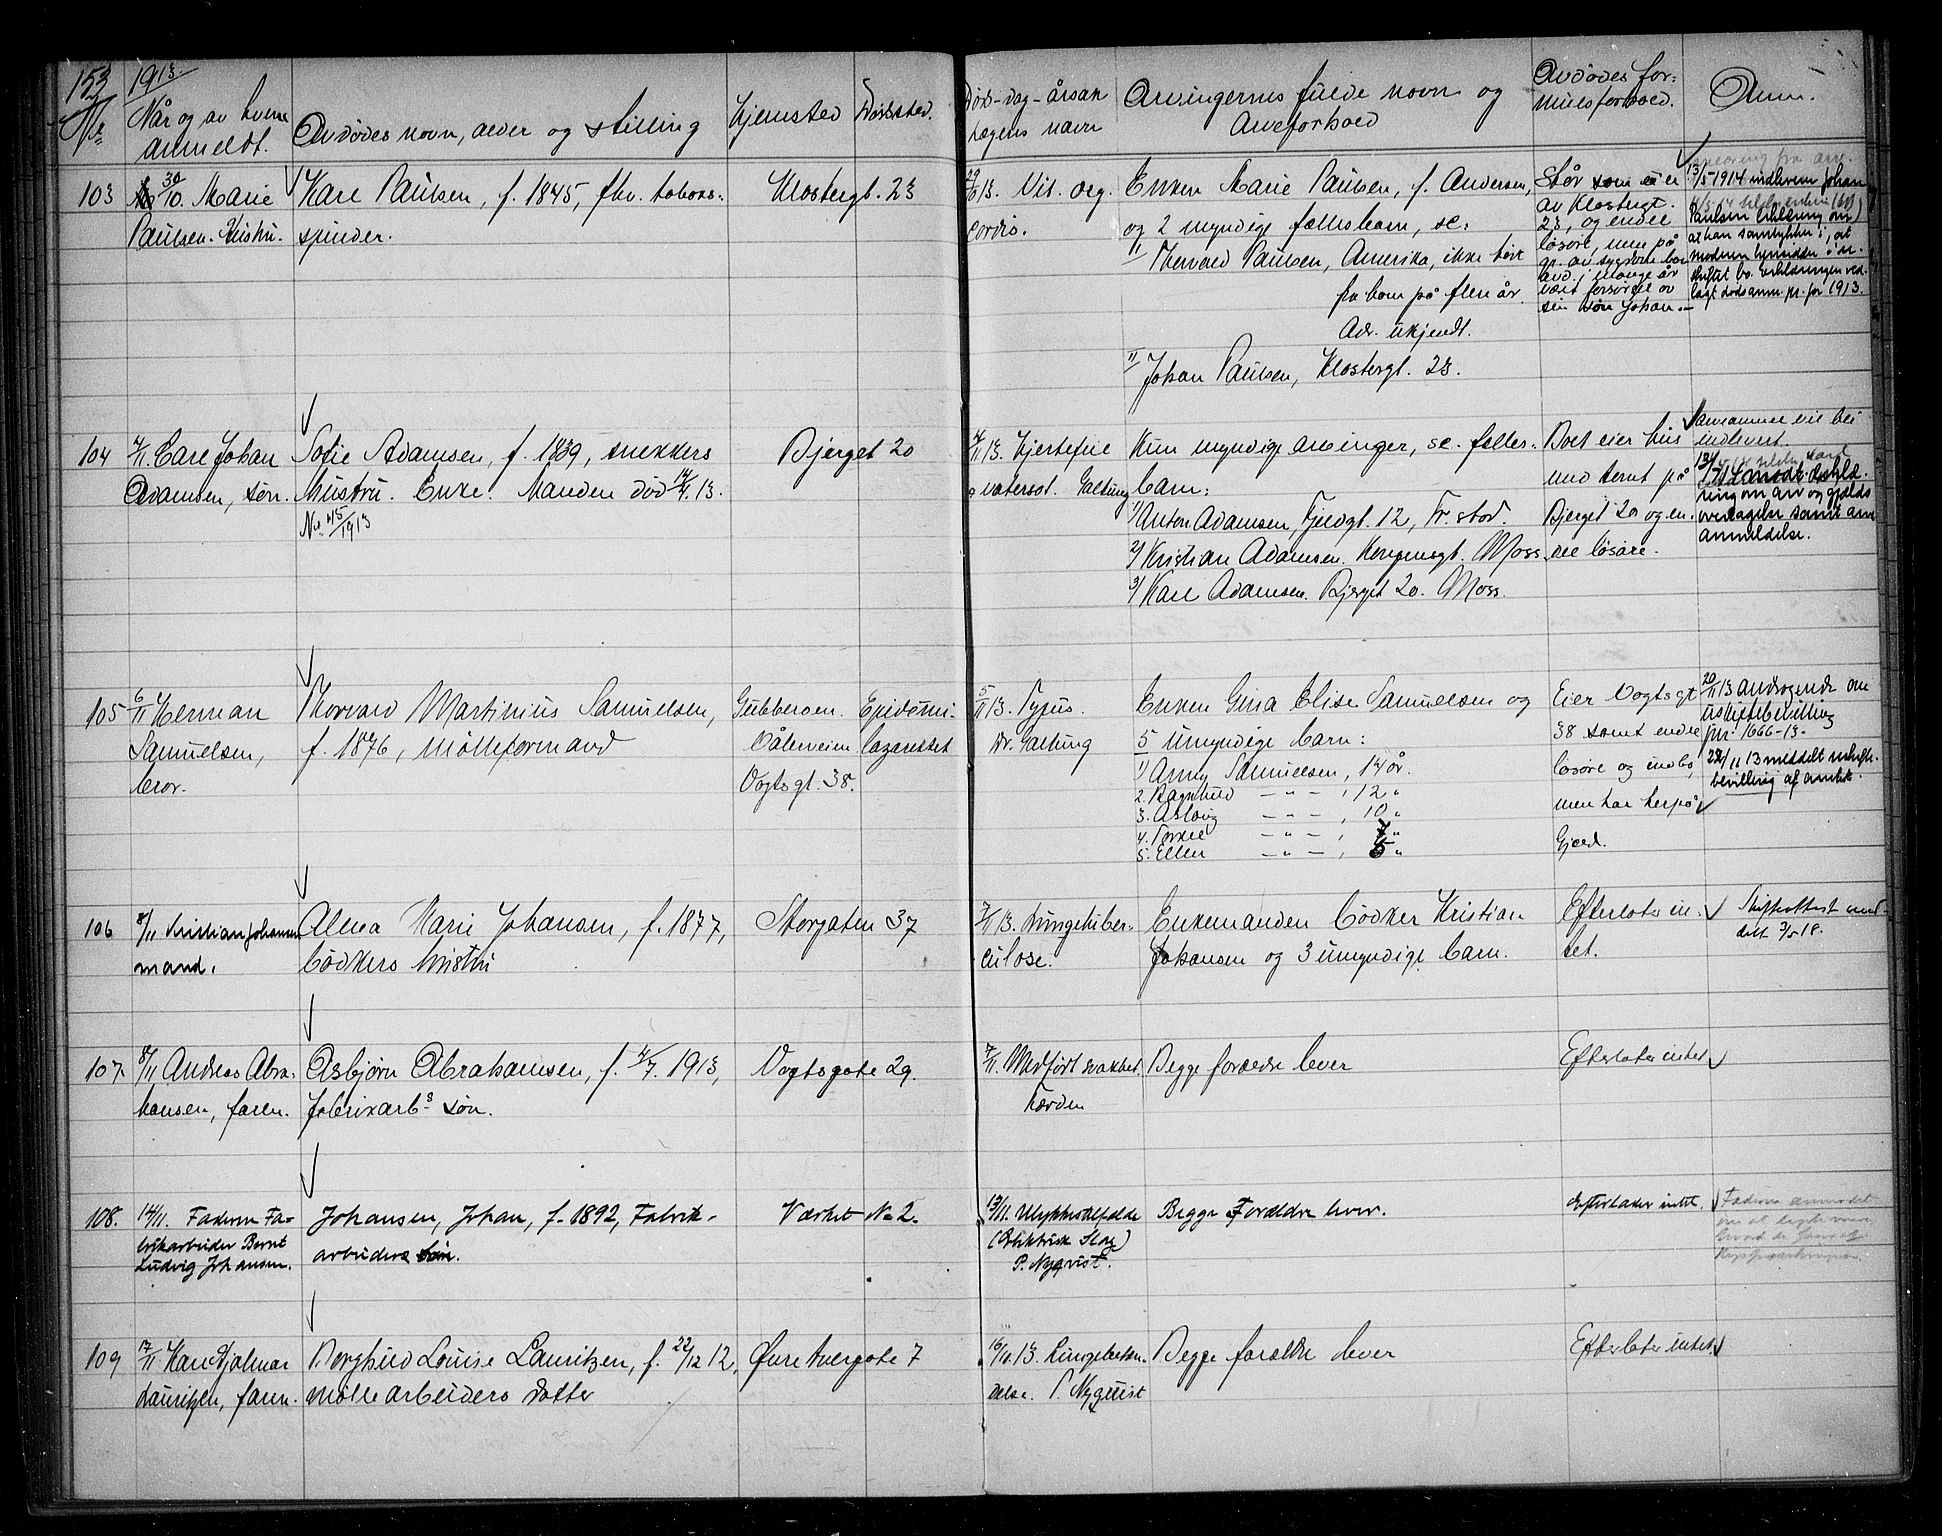 153
1913.
No
Når og av hvem
anmeldt.
Avdødes navn, alder og stilling
Hjemsted
Dødssted.
Døds-dag-årsak
Lægens navn
Arvingernes fulde navn og
Arveforhold
Avdødes for-
muesforhold.
Anm.
103
30/10. Marie
Paulsen. Hustru.
Karl Paulsen, f. 1845, fhv. tobaks-
spinder.
Klostergt. 23
29/10 13. Vit. org.
cordis.
Enken Marie Paulsen, f. Andersen,
og 2 myndige fællesbarn, se:
1/ Thorvald Paulsen, Amerika, ikke hørt
fra ham på flere år.
Adr. ukjendt.
11/ Johan Paulsen, Klostergt. 23.
Står som eier
av Klostergt.
23, og endel
løsøre, men på
gr. av sygdom har
avd. i mange år
vært forsørget av
sin søn Johan.
13/5 1914 indleverer Johan
Paulsen erklæring om
at han samtykker i, at
moderen hensidder i u-
skiftet bo. Erklæringen ved-
lagt dødsanm. pr. for 1913.
104
7/11. Carl Johan
Adamsen, søn.
Sofie Adamsen, f. 1839, snekkers
hustru. Enke. Manden død 14/4. 13.
No. 45/1913
Bjerget 20
4/11 13. Hjertefeil
og vatersot. Galtung
Kun myndige arvinger, se. fælles-
barn:
1/ Anton Adamsen, Fjeldgt. 12, Fr.stad.
2/ Kristian Adamsen. Kongensgt. Moss.
3/ Karl Adamsen. Bjerget 20. Moss.
Boet eier hus
med tomt på
Bjerget 20 og en-
del løsøre.
indlevert.
ring om arv og gjelds
overtagelse samt arve
anmeldelse.
105
6/11 Herman
Samuelsen,
bror.
Thorvald Martinius Samuelsen,
f. 1876, mølleformand
Gubberoen.
Vålerveien
Vogtsgt. 38.
Epidemi-
lazarettet
5/11 13. Tyfus.
Dr. Galtung
Enken Gina Elise Samuelsen og
5 umyndige barn:
1/ Anny Samuelsen, 14 år.
2. Ragnhild — " — , 12 "
3. Aslaug — " — , 10 "
4. Torkel — " — , 7 "
5. Ellen — " — , 5 "
Eier Vogtsgt
38 samt endel
løsøre og indbo,
men har herpå
Gjæld.
20/11 13 andragende om
uskiftebevilling
jnr. 1666-13-
22/11 13 meddelt uskifte-
bevilling af amtet.
106
8/11 Kristian Johansen
mand.
Alma Marie Johansen, f. 1877,
bødkers hustru
Storgaten 37
7/11 13. Lungetuber-
culose.
Enkemanden bødker Kristian
Johansen og 3 umyndige barn.
Efterlater in-
tet.
Skifteattest med-
delt 3/5 18.
107.
8/11 Andreas Abra-
hansen, faren.
Asbjørn Abrahamsen, f. 4/7. 1913,
fabrikarbs søn.
Vogtsgate 29.
7/11. Medfødt svakhet.
Færden
Begge forældre lever
Efterlater intet.
108.
14/11. Faderen Fa-
brikarbeider Bernt
Ludvig Johansen.
Johansen, Johan, f. 1892, Fabrik-
arbeiders søn.
Værket No 2.
13/11. Ulykkestilfælde
(Elektrisk Slag)
P. Nyqvist.
Begge Forældre lever.
Efterlader intet.
Faderen anmodet
109
17/11 Karl Hjalmar
Lauritzen, faren.
Borghild Louise Lauritzen, f. 22/12 12,
møllearbeiders datter
Øvre tvergate 7
16/11. 13. Lungebetæn-
delse. P. Nyquist
Begge forældre lever
Efterlater intet.